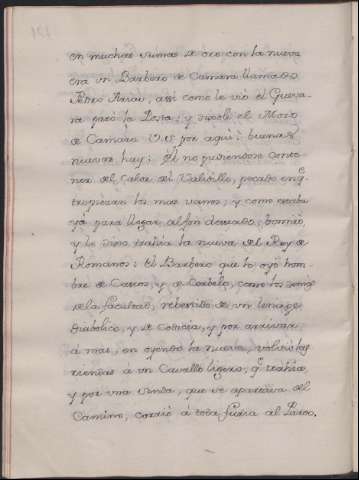 en muchas sumas de oro con la nueva
era un Barbero de Camara llamado
Pedro Arias, asi como le vio el Gueva-
ra paró la Posta; y dijole el Mozo
de Camara V. S. por aqui: buenas
nuevas hay: El no pudiendose conte-
ner del Calor del Valdillo, pecado en q.e
tropiezan los mas vanos, y como estaba
ya para llegar al fin deseado,
y le dijo, trahia la nueva del Rey de
Romanos: El Barbero que lo oyó hom-
bre de Caxco, y de Cordelejo, como los
de la facultad, rebestido de un
diabolico, y de Codicia, y por arrivar
á mas, en oyendo la nueva, volvió las
riendas á un Cavallo ligero, q.e trahia
y por una senda, que se apartava del
Camino, corrió á toda furia al Pardo.